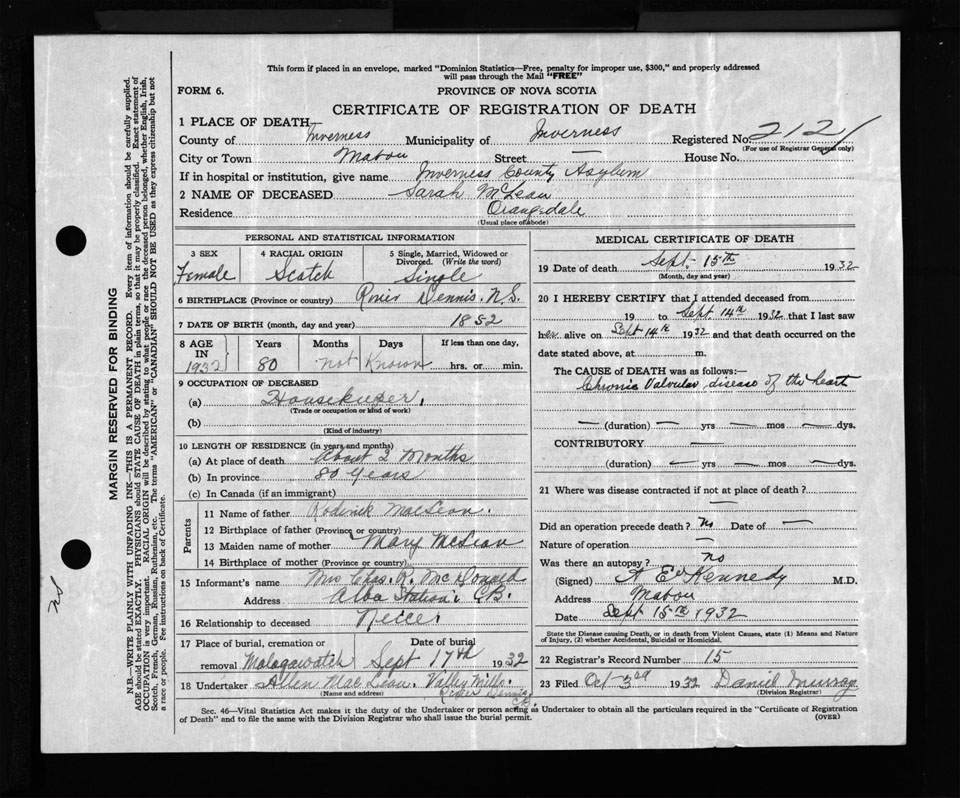 This form if placed in an envelope, marked "Dominion Statistics—Free, penalty for improper use, $300," and properly addressed
will pass through the Mail "FREE"
FORM 6.
PROVINCE OF NOVA SCOTIA
CERTIFICATE OF REGISTRATION OF DEATH
1 PLACE OF DEATH
County of Inverness Municipality of Inverness Registered No. 2121
(For use of Registrar General only)
City or Town Mabou Street — House No.
If in hospital or institution, give name Inverness County Asylum
2 NAME OF DECEASED Sarah McLean
Residence Orangedale
(Usual place of abode)
PERSONAL AND STATISTICAL INFORMATION
3 SEX 4 RACIAL ORIGIN 5 Single, Married, Widowed or Divorced. (Write the word)
Female Scotch Single
6 BIRTHPLACE (Province or country) River Dennis. N.S.
7 DATE OF BIRTH (month, day and year) 1852
8 AGE IN Years Months Days If less than one day,
1932 80 not Known hrs. or min.
9 OCCUPATION OF DECEASED
(a) Housekeeper.
(Trade or occupation or kind of work)
(b)
(Kind of industry)
10 LENGTH OF RESIDENCE (in years and months)
(a) At place of death About 2 Months
(b) In province 80 Years
(c) In Canada (if an immigrant)
Parents
11 Name of father Roderick MacLean.
12 Birthplace of father (Province or country)
13 Maiden name of mother Mary McLean
14 Birthplace of mother (Province or country)
15 Informant's name Mrs Chas. R. McDonald
Address Alba Station, C.B.
16 Relationship to deceased Niece.
17 Place of burial, cremation or Date of burial
removal Malagawatch Sept 17th 1932
18 Undertaker Allen MacLean. Valley Mills.
(Name and address) River Dennis, C.B.
MEDICAL CERTIFICATE OF DEATH
19 Date of death Sept. 15th 1932
(Month, day and year)
20 I HEREBY CERTIFY that I attended deceased from
19 to Sept. 14th 1932 that I last saw
her alive on Sept 14th 1932 and that death occurred on the
date stated above, at m.
The CAUSE of DEATH was as follows:—
Chronic Valvular disease of the heart
— (duration) — yrs — mos — dys.
CONTRIBUTORY —
(duration) — yrs — mos — dys.
21 Where was disease contracted if not at place of death? —
Did an operation precede death? No Date of —
Nature of operation —
Was there an autopsy? no
(Signed) Kennedy M.D.
Address Mabou
Date Sept 15th 1932
State the Disease causing Death, or in death from Violent Causes, state (1) Means and Nature
of Injury, (2) whether Accidental, Suicidal or Homicidal.
22 Registrar's Record Number 15
23 Filed Oct 3rd 1932 Daniel Murray
(Division Registrar)
Sec. 46—Vital Statistics Act makes it the duty of the Undertaker or person acting as Undertaker to obtain all the particulars required in the "Certificate of Registration
of Death" and to file the same with the Division Registrar who shall issue the burial permit.
(OVER)
MARGIN RESERVED FOR BINDING
N.B.—WRITE PLAINLY WITH UNFADING INK—THIS IS A PERMANENT RECORD. Every item of information should be carefully supplied.
AGE should be stated EXACTLY. PHYSICIANS should STATE CAUSE OF DEATH in plain terms, so that it may be properly classified. Exact statement of
OCCUPATION is very important. RACIAL ORIGIN will be described by stating to what people or race the deceased person belonged, whether English, Irish,
Scotch, French, German, Russian, Ruthenian, etc. The terms "AMERICAN" or "CANADIAN" SHOULD NOT BE USED as they express citizenship but not
a race or people. See instructions on back of Certificate.